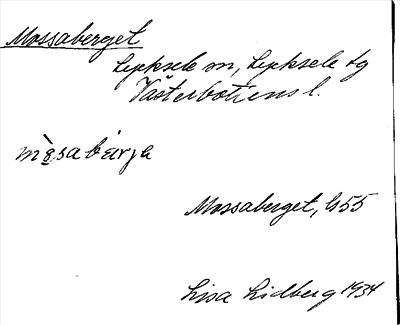 Mossaberget
Lycksele sn, Lycksele tg
Västerbottens l.
mo̱sabárja
Mossaberget, bs 55
Lisa Lidberg 1934